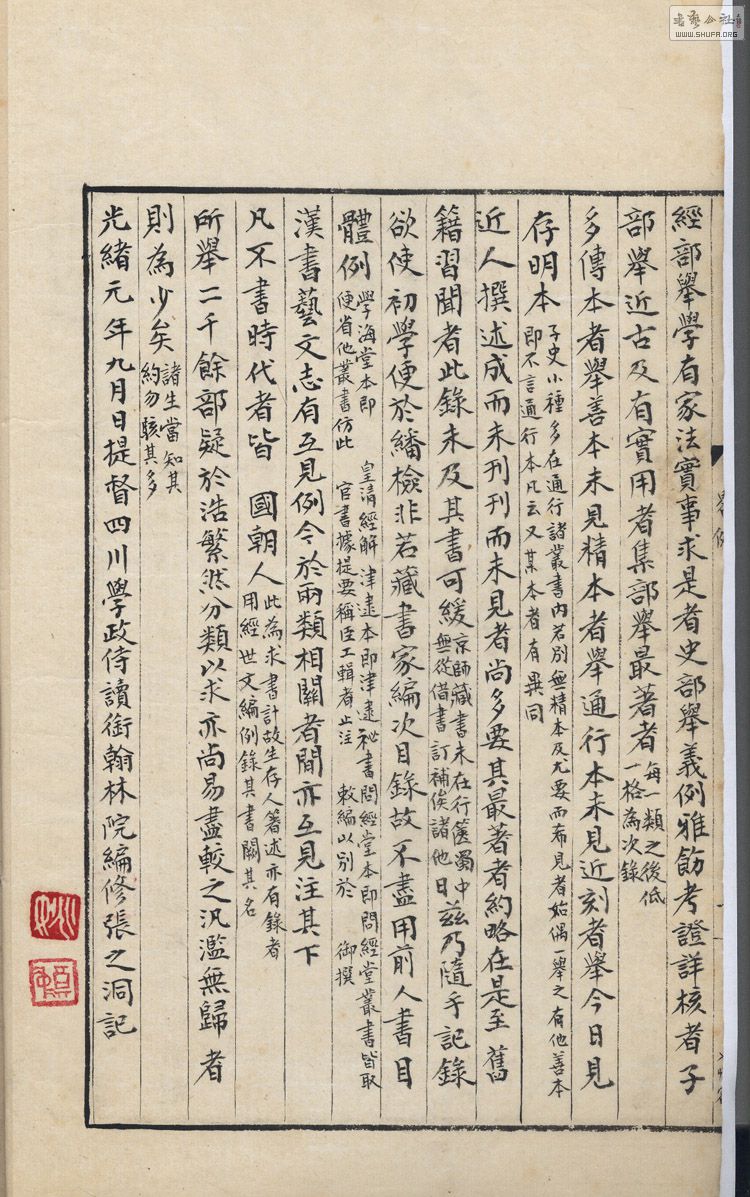 經部舉學有家法實事求是者史部舉義例雅飭考證詳核者子
部舉近古及有實用者集部舉最著者每一類之後低一格為次錄
多傳本者舉善本未見精本者舉通行本未見近刻者舉今日見
存明本子史小種多在通行諸叢書內若別無精本及尤要而希見者始偶一舉之有他善本即不言通行本凡云又某本者有異同
近人撰述成而未刊刊而未見者尚多要其最著者約略在是至舊
籍習聞者此錄未及其書可緩京師藏書未在行篋蜀中無從借書訂補俟諸他日茲乃隨手記錄
欲使初學便於繙檢非若藏書家編次目錄故不盡用前人書目
體例學海堂本即皇清經解津逮本即津逮祕書問經堂本即問經堂叢書皆取便省他叢書仿此官書據提要稱臣工輯者止注敕編以別於御撰
漢書藝文志有互見例今於兩類相關者間亦互見注其下
凡不書時代者皆國朝人此為求書計故生存人著述亦有錄者用經世文編例錄其書闕其名
所舉二千餘部疑於浩繁然分類以求亦尚易盡較之汎濫無歸者
則為少矣諸生當知其約勿駭其多
光緒元年九月日提督四川學政侍讀銜翰林院編修張之洞記
書藝公社
WWW.SHUFA.ORG